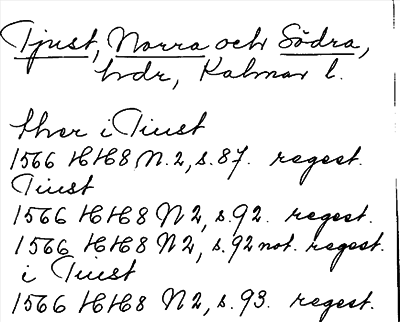 Tjust, Norra och Södra,
hdr, Kalmar l.
i Tiust
1566 HH8 N. 2, s. 87. regest.
Tiust
1566 HH8 N 2, s. 92. regest.
1566 HH8 N 2, s. 92 not. regest.
i Tiust
1566 HH8 N 2, s. 93. regest.